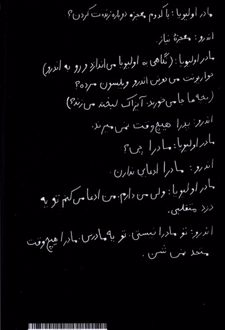 مادر اولیویا: با کدوم معجزه دوباره زندت کردن؟
اندرو: معجزۀ نیاز.
مادر اولیویا: (نگاهی به اولیویا می‌اندازد و رو به اندرو)
می‌دونی اندرو ویلسون مرده؟
(بچه‌ها جا می‌خورند. آیزاک لبخند می‌زند؟)
اندرو: پدرا هیچ‌وقت نمی‌میرند.
مادر اولیویا: مادرا چی؟
اندرو: مادرا ادعایی ندارن.
مادر اولیویا: ولی من دارم. من ادعا می‌کنم تو یه
دزد متقلبی.
اندرو: تو مادرا نیستی. تو یه مادری. مادرا هیچ‌وقت
متحد نمی‌شن.